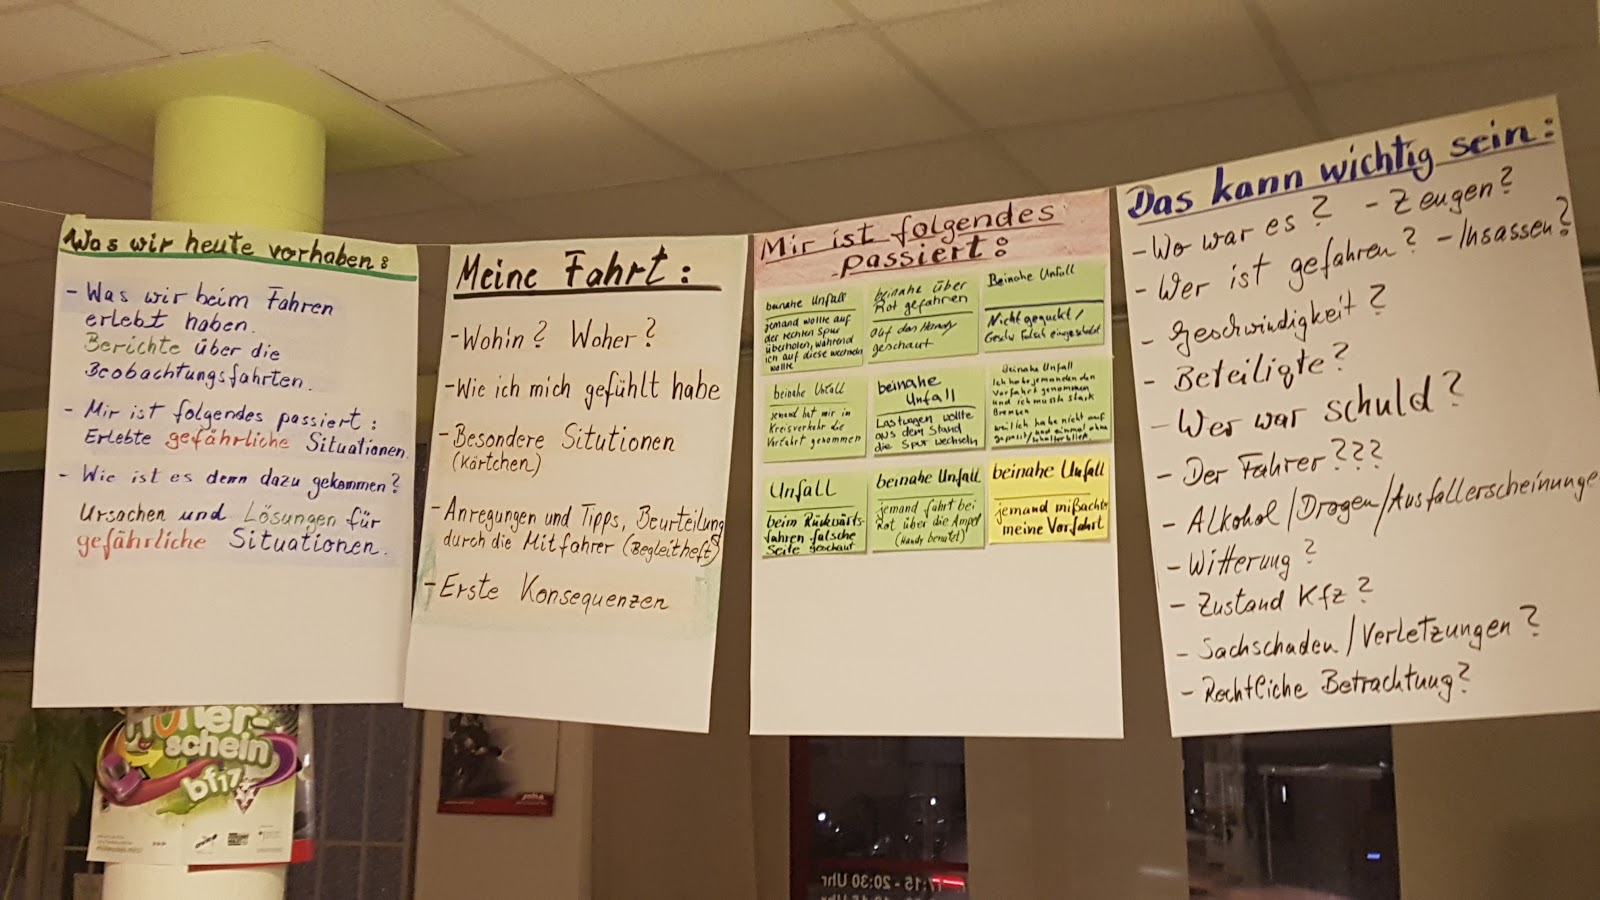 Was wir heute vorhaben:
- Was wir beim Fahren
erlebt haben.
Berichte über die
Beobachtungsfahrten.
- Mir ist folgendes passiert:
Erlebte gefährliche Situationen.
- Wie ist es denn dazu gekommen?
Ursachen und Lösungen für
gefährliche Situationen.
Meine Fahrt:
- Wohin? Woher?
- Wie ich mich gefühlt habe
- Besondere Situtionen
(Kärtchen)
- Anregungen und Tipps, Beurteilung
durch die Mitfahrer (Begleitheft)
- Erste Konsequenzen
Mir ist folgendes
passiert:
beinahe Unfall
jemand wollte auf
der rechten Spur
überholen, während
ich auf diese wechseln
wollte
beinahe über
Rot gefahren
auf das Handy
geschaut
Beinahe Unfall
Nicht geguckt/
Geschw. Falsch eingeschätzt
beinahe Unfall
jemand hat mir im
Kreisverkehr die
Vorfahrt genommen
beinahe
Unfall
Lastwagen wollte
aus dem Stand
die Spur wechseln
Beinahe Unfall
Ich habe jemanden den
Vorfahrt genommen
und ich musste stark
Bremsen
weil ich habe nicht auf
gepasst/und einmal ohne
Schulterblick.
Unfall
beim Rückwärts-
fahren falsche
Seite geschaut
beinahe Unfall
jemand fährt bei
Rot über die Ampel
(Handy benutzt)
beinahe Unfall
jemand mißachtet
meine Vorfahrt
Das kann wichtig sein:
- Wo war es? - Zeugen?
- Wer ist gefahren? - Insassen?
- Geschwindigkeit?
- Beteiligte?
- Wer war schuld?
- Der Fahrer???
- Alkohol/Drogen/Ausfallerscheinunge
- Witterung?
- Zustand Kfz?
- Sachschaden/Verletzungen?
- Rechtliche Betrachtung?
schein
bf17
17:15 - 20:30 Uhr